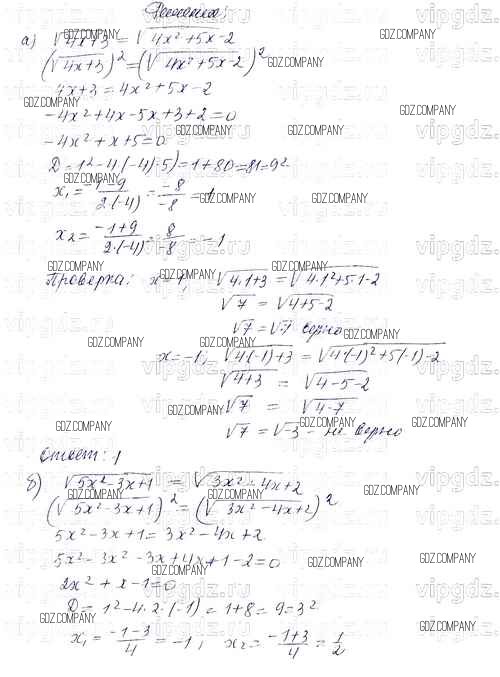 Решение:
а) √4x+3 = √4x²+5x-2
(√4x+3)² = (√4x²+5x-2)²
4x+3 = 4x²+5x-2
-4x²+4x-5x+3+2=0
-4x²+x+5=0
D=1²-4·(-4)·5)=1+80=81=9²
x₁= -1-9/2·(-4) = -8/-8 = 1
x₂= -1+9/2·(-4) = 8/-8 = -1
Проверка: x=1, √4·1+3 = √4·1²+5·1-2
√7 = √4+5-2
√7 = √7 верно
x=-1; √4(-1)+3 = √4·(-1)²+5(-1)-2
√4+3 = √4-5-2
√7 = √4-7
√7 = √-3 - не верно
Ответ: 1
б) √5x²-3x+1 = √3x²-4x+2
(√5x²-3x+1)² = (√3x²-4x+2)²
5x²-3x+1 = 3x²-4x+2
5x²-3x²-3x+4x+1-2=0
2x²+x-1=0
D= 1²-4·2·(-1) = 1+8=9=3²
x₁= -1-3/4 = -1; x₂= -1+3/4 = 1/2
GDZ.COMPANY
vipgdz.ru